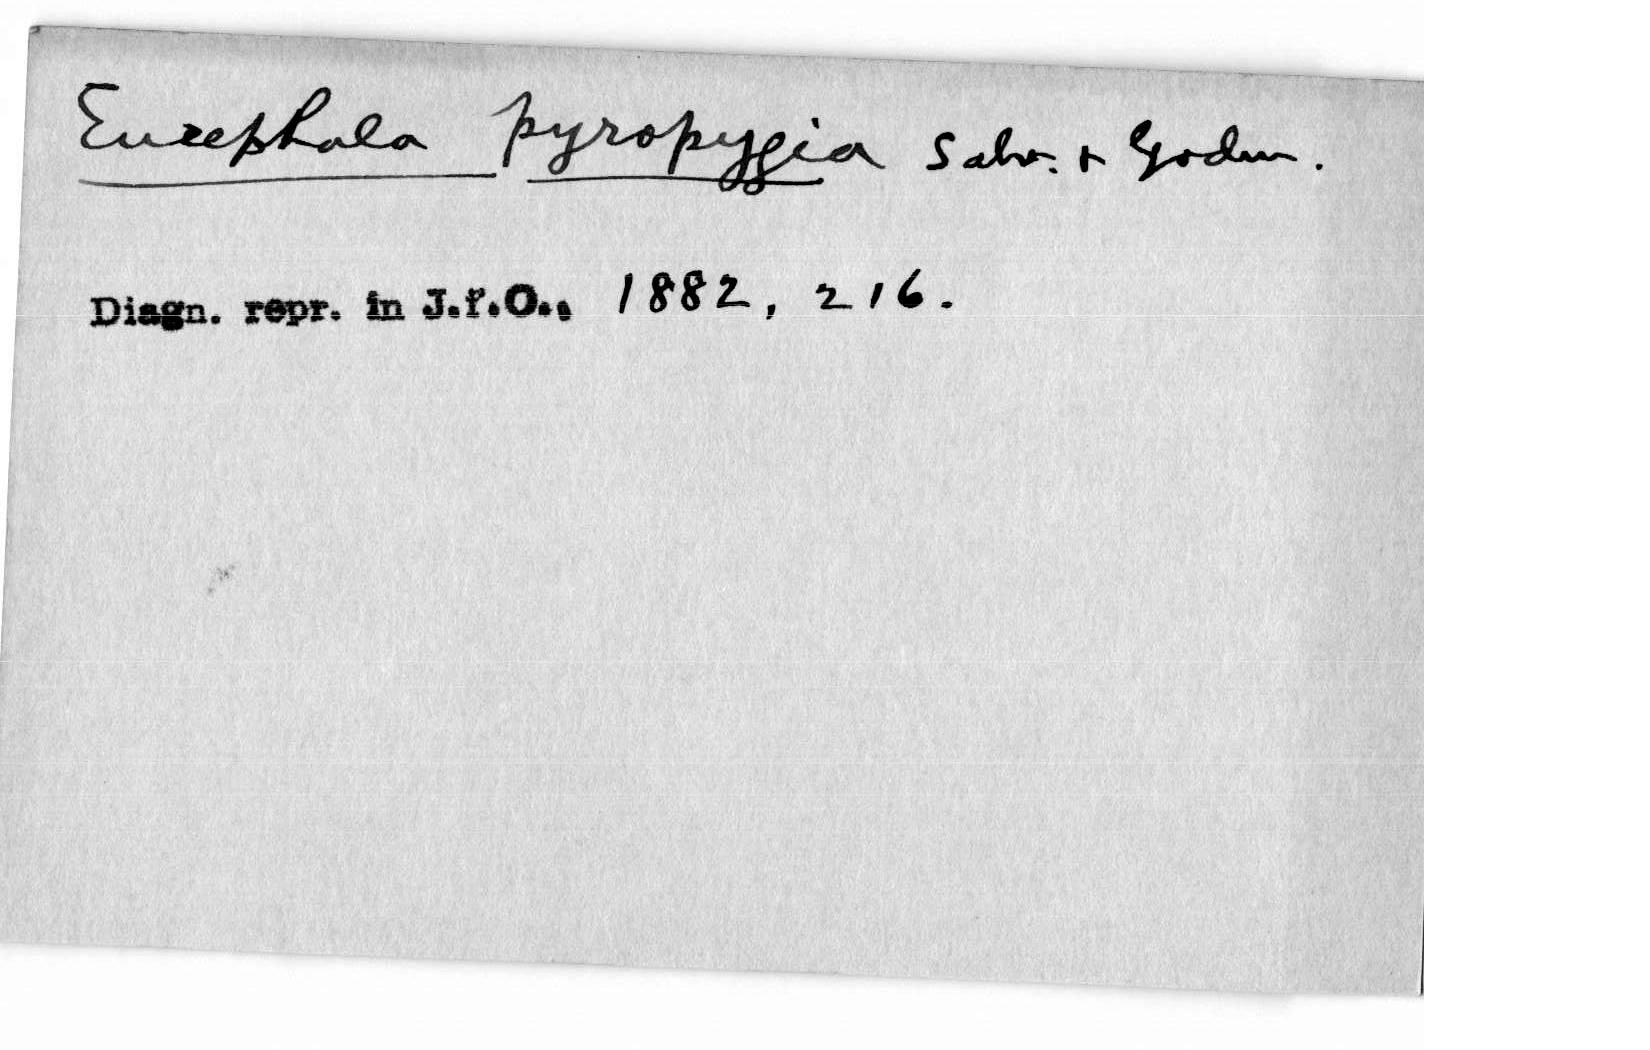 Eucephala pyropygia Salv. + Godm.
Diagn. repr. in J.f.O., 1882, 216.